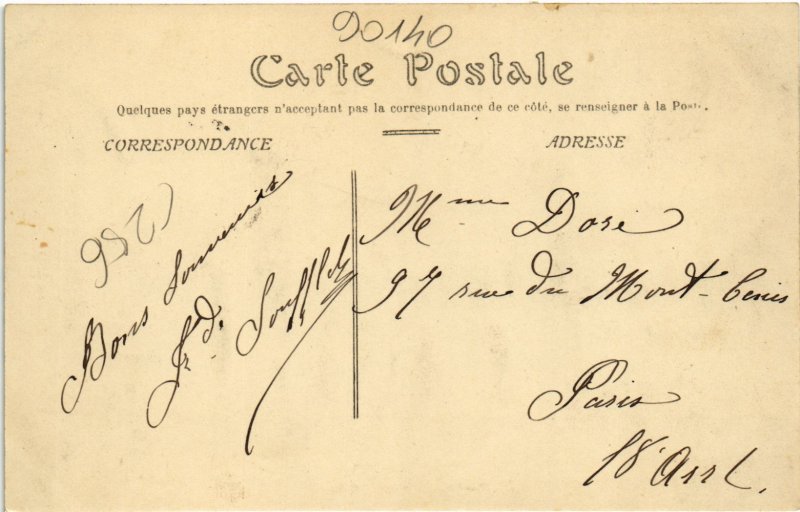 90140
Carte Postale
Quelques pays étrangers n'acceptant pas la correspondance de ce côté, se renseigner à la Poste.
CORRESPONDANCE
ADRESSE
Bons Souvenirs
Mme Doré
97 rue du Mont-Cenis
Paris
18 Arrt.